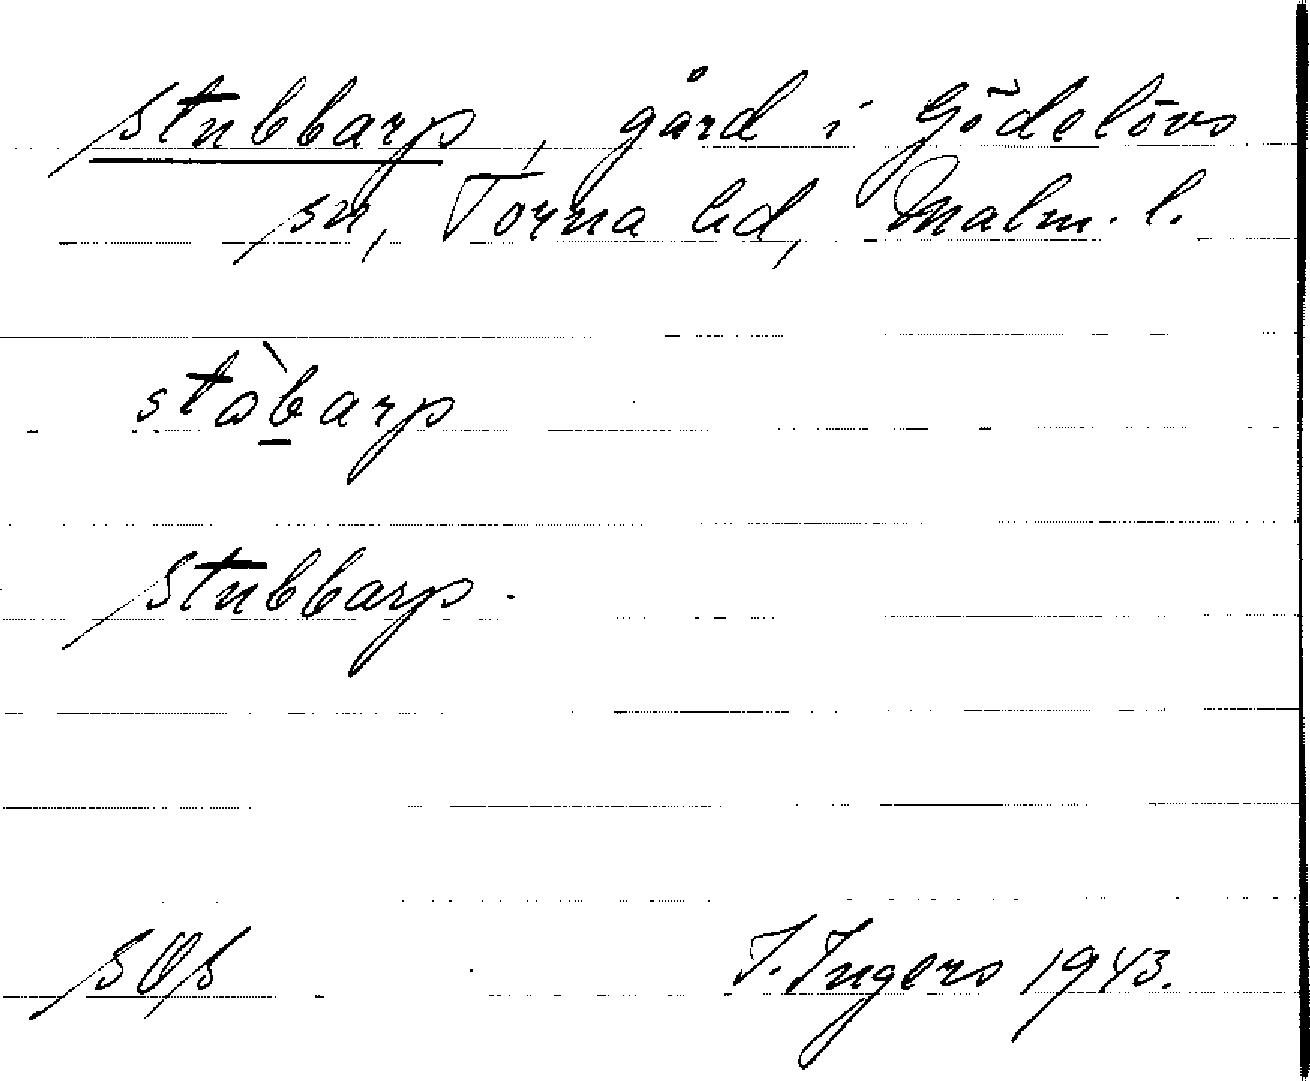 Stubbarp, gård i Gödelövs
sn, Torna hd, Malm. l.
stòb̲arp
Stubbarp.
I. Ingers 1943.